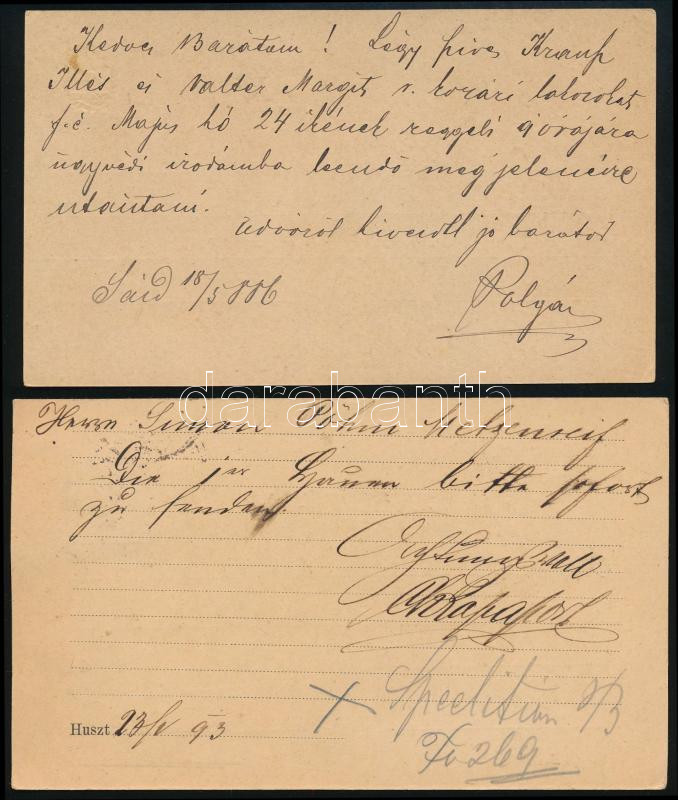 Kedves Barátom! Légy szives Krausz
Illés és Valter Margit v. kozári lakosokat
f. é. Május hó 24 ikének reggeli 9 órájára
ügyvédi irodámba leendő megjelenésre
utasitani.
Üdvözöl kiválóll jó barátod
18/5 886
Polgár
darabanth
Herrn Simon Böhm Metzenseif
Die j er Hauen bitte sofort
zu senden.
Achtungsvoll
Rapaport
Huszt 23/V 93
Spedition
Fo 269